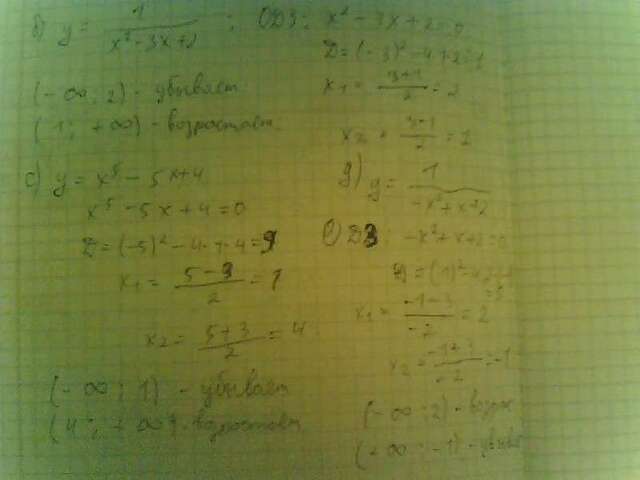 б) y = 1 / x² - 3x + 2 ; ОДЗ: x² - 3x + 2 = 0
D = (-3)² - 4 · 2 = 1
x₁ = 3+1 / 2 = 2
x₂ = 3-1 / 2 = 1
(-∞; 2) - убывает
(1; +∞) - возрастает
c) y = x⁵ - 5x + 4
x⁵ - 5x + 4 = 0
D = (-5)² - 4 · 1 · 4 = 9
x₁ = 5 - 3 / 2 = 1
x₂ = 5 + 3 / 2 = 4
(-∞; 1) - убывает
(4; +∞) - возрастает
g) y = 1 / -x²+x+2
ОДЗ -x² + x + 2 = 0
x₁ = -1-3 / -2 = 2
x₂ = -1+3 / -2 = -1
(-∞; 2) - возрас
(+∞; -1) - убывае